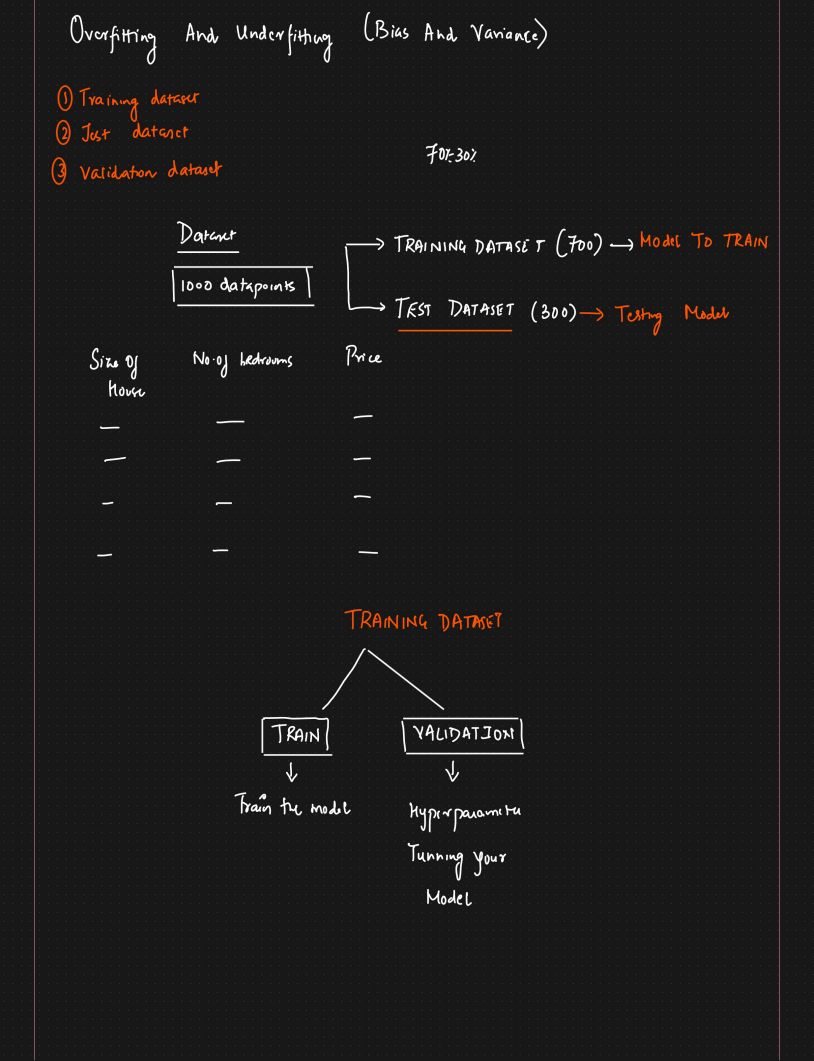 Overfitting And Underfitting (Bias And Variance)
① Training dataset
② Test dataset
③ Validation dataset
70%-30%
Dataset
1000 datapoints
TRAINING DATASET (700) → Model To TRAIN
TEST DATASET (300) → Testing Model
Size Of House
No. of bedrooms
Price
TRAINING DATASET
TRAIN
VALIDATION
Train the model
Hyperparameter
Tunning your
Model